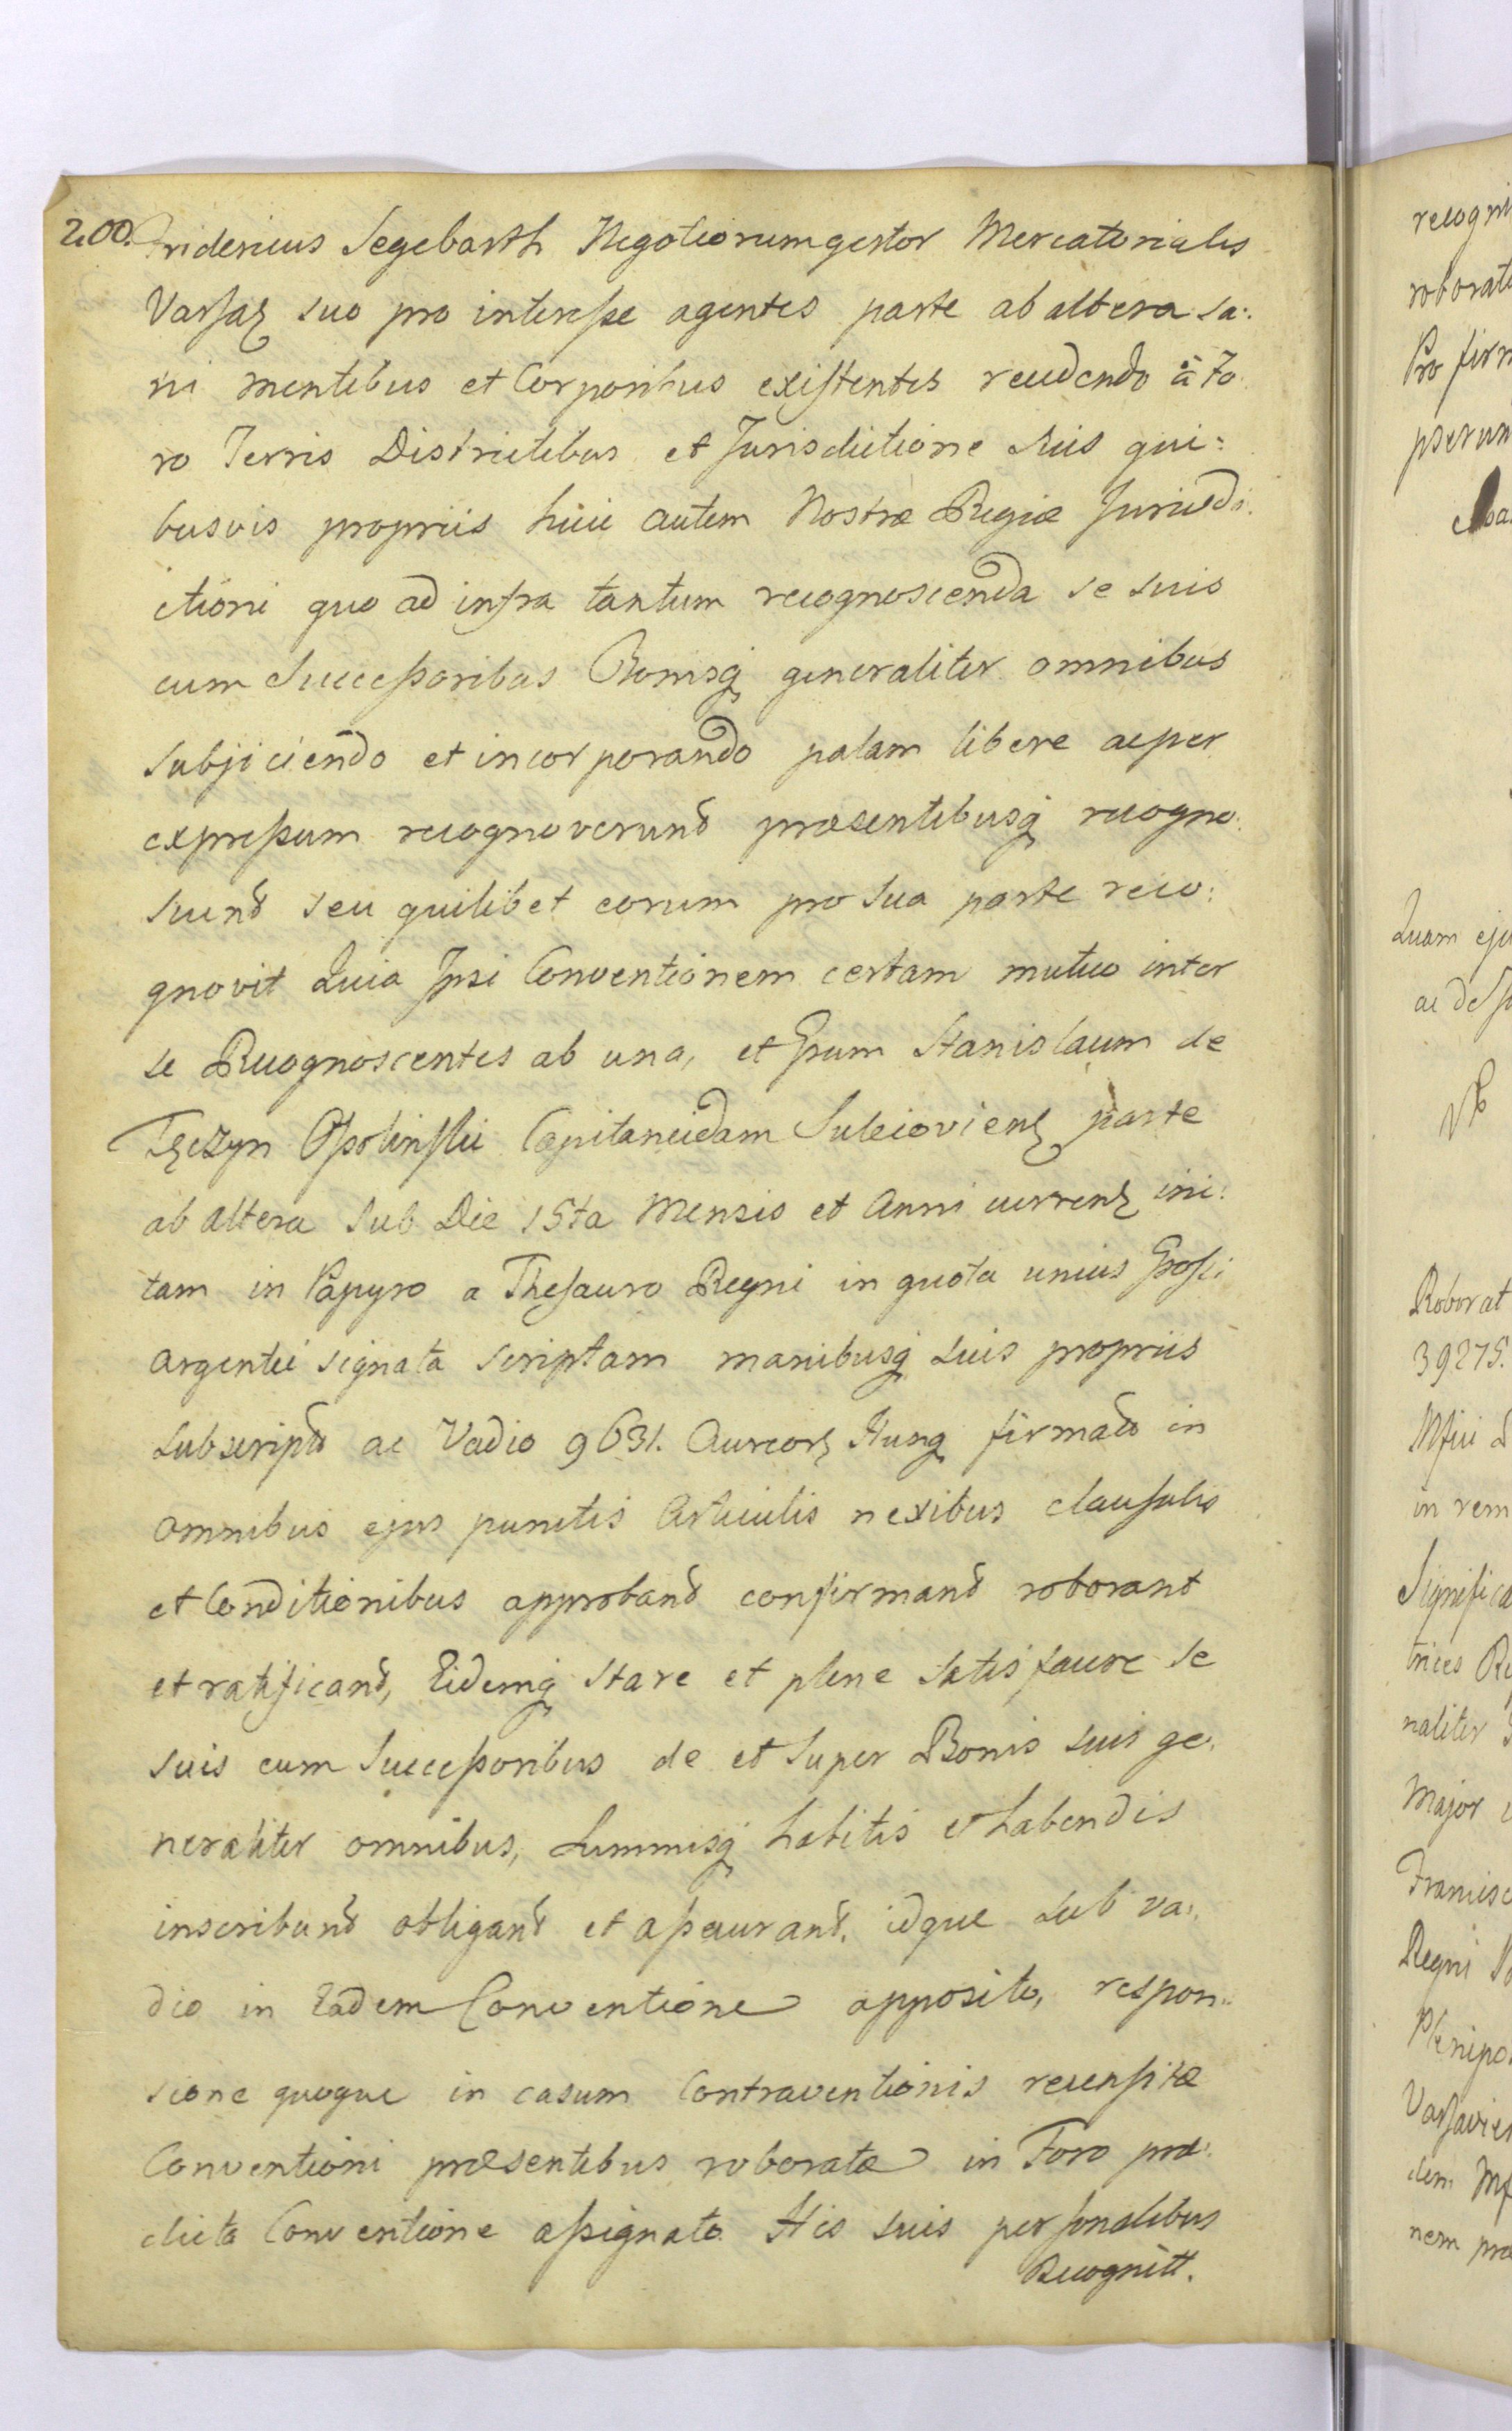 200. Fridericus Segebarth Negotiorumgestor Mercatorialis
Varſaꝫ suo pro intereſse agentes parte ab altera sa:
ni mentibus et Corporibus exiſtentes recedendo à Fo
ro Terris Districtibus et Jurisdictione Suis qui:
busvis propriis huic autem Nostræ Regiæ Jurisdi:
ctioni quo ad infra tantum recognoscenda se suis
cum Succeſsoribus Bonisq generaliter omnibus
subjiciendo et incorporando palam libere ac per
expreſsum recognoverund præsentibusq recogno:
scund seu quilibet eorum pro sua parte reco:
gnovit Quia Ipsi Conventionem certam mutuo inter
se Recognoscentes ab una, et Gsum Stanislaum de
Tęczyn Oſsolinſki Capitaneidam Sulejovienꝫ parte
ab altera sub Die 15ta Mensis et Anni currenꝫ ini:
tam in Papyro a Theſauro Regni in quota unius Groſſi
argentei signata scriptam manibusq suis propriis
subscriptd ac Vadio 9631. Aureorꝫ Hung firmatd in
omnibus ejus punctis Articulis nexibus clauſulis
et Conditionibus approband confirmand roborant
et ratificand, Eidemq stare et plene satisfacere se
suis cum Succeſsoribus de et super Bonis suis ge:
neraliter omnibus, Summisq habitis et habendis
inscribund obligand et aſsecurand. idque sub va:
dio in Eadem Conventione apposito, respon:
sione quoque in casum Contraventionis recenſitæ
Conventioni præsentibus roboratæ in Foro præ:
dicta Conventione aſsignato His suis perſonalibus
Recognitt.
recogni
roborat
Pro firm
pserun
Quam eju
ac deſ
Roborat
39275.
in rem
Significa
trices Re
naliter
Major
Francisc
Regni
Plenipo
Varſavien
dem
nem præ